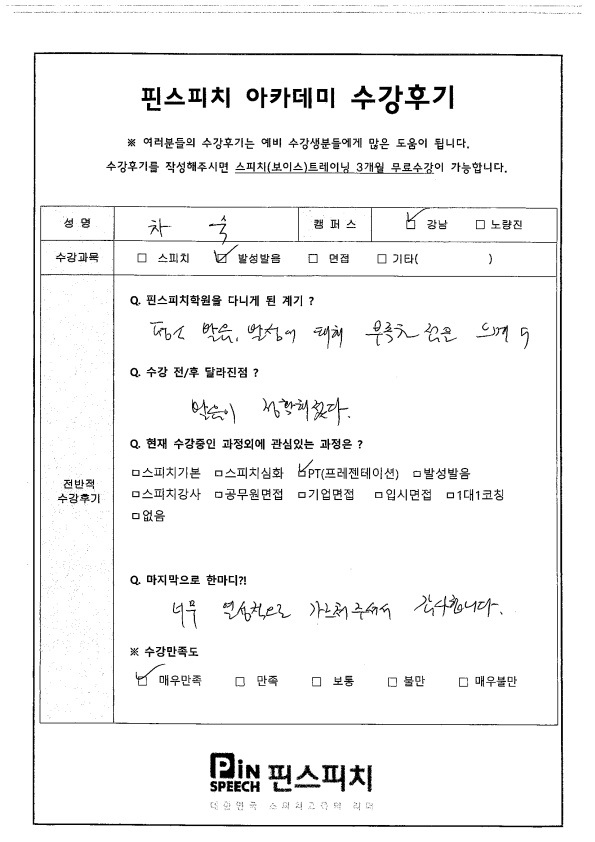 핀스피치 아카데미 수강후기
※ 여러분들의 수강후기는 예비 수강생분들에게 많은 도움이 됩니다.
수강후기를 작성해주시면 스피치(보이스)트레이닝 3개월 무료수강이 가능합니다.
성 명 차 욱 캠 퍼 스 ☑ 강남 □ 노량진
수강과목 □ 스피치 ☑ 발성발음 □ 면접 □ 기타( )
Q. 핀스피치학원을 다니게 된 계기 ?
평소 발음, 발성에 대해 부족한 점을 느껴서
Q. 수강 전/후 달라진점 ?
발음이 정확해졌다.
Q. 현재 수강중인 과정외에 관심있는 과정은 ?
전반적
수강후기
□스피치기본 □스피치심화 ☑PT(프레젠테이션) □발성발음
□스피치강사 □공무원면접 □기업면접 □입시면접 □1대1코칭
□없음
Q. 마지막으로 한마디?!
너무 열심적으로 가르쳐주셔서 감사합니다.
※ 수강만족도
☑ 매우만족 □ 만족 □ 보통 □ 불만 □ 매우불만
PiN SPEECH 핀스피치
대한민국 스피치교육의 리더